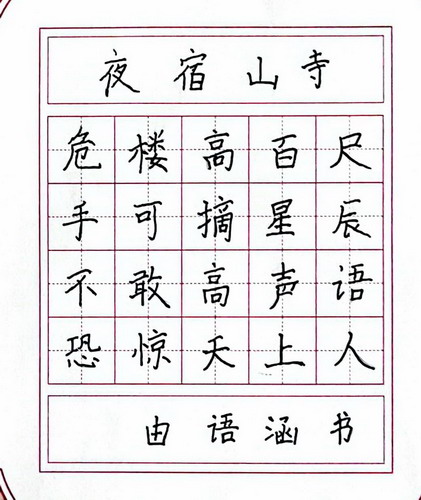 夜宿山寺
危楼高百尺
手可摘星辰
不敢高声语
恐惊天上人
由语涵书